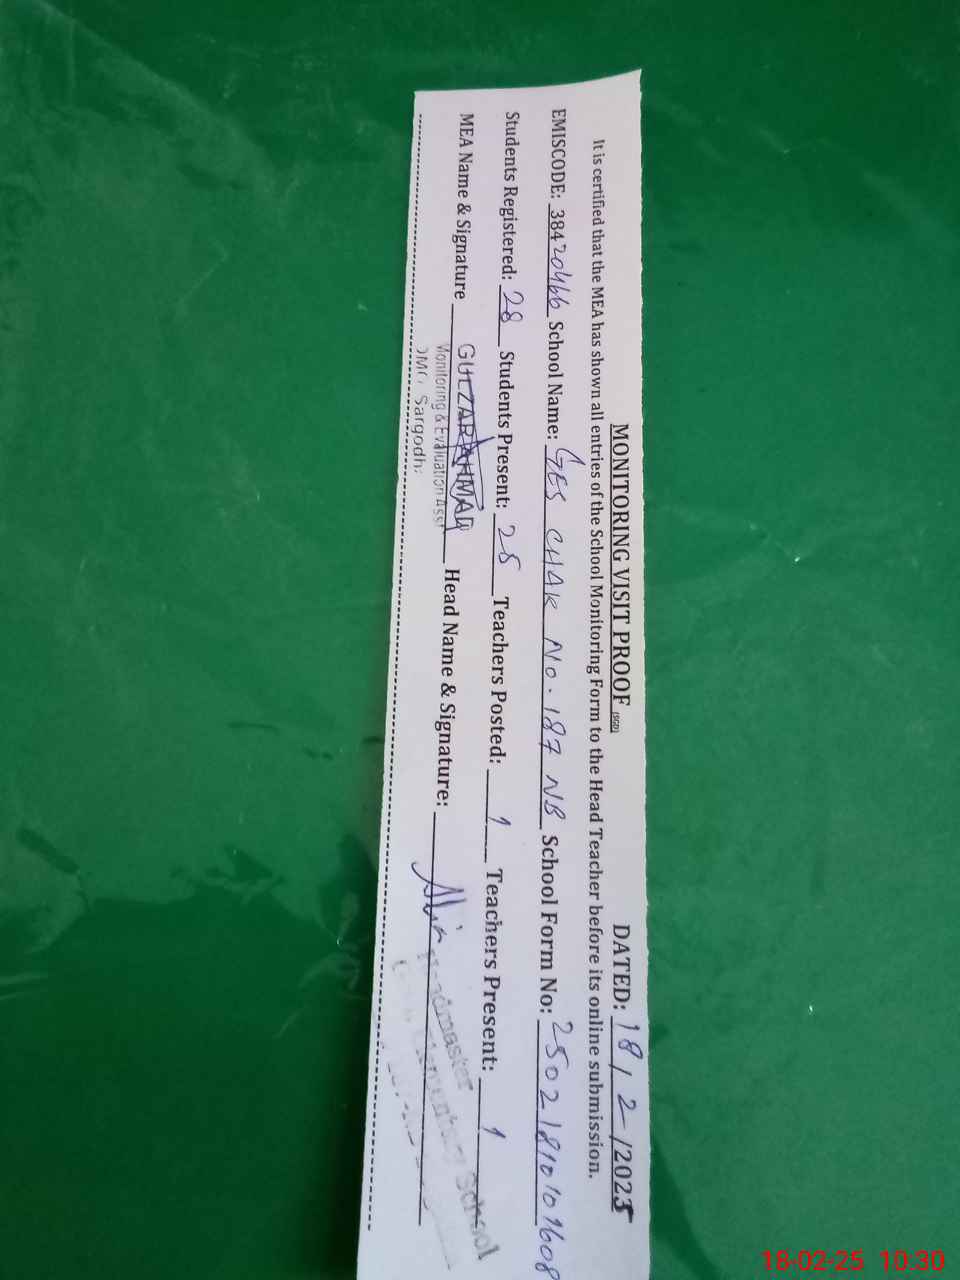 MONITORING VISIT PROOF (SGD) DATED: 18/2/2025
It is certified that the MEA has shown all entries of the School Monitoring Form to the Head Teacher before its online submission.
EMISCODE: 38420466 School Name: GES CHAK No. 187 NB School Form No:
Students Registered: 28 Students Present: 25 Teachers Posted: 1 Teachers Present: 1
MEA Name & Signature GULZAR AHMAD Head Name & Signature:
Monitoring & Evaluation Asst
Sargodh
School
18-02-25 10:30